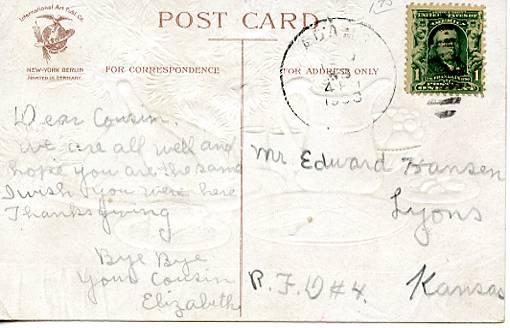 International Art Publ. Co.
NEW-YORK BERLIN
PRINTED IN GERMANY.
POST CARD
FOR CORRESPONDENCE
FOR ADDRESS ONLY
Dear Cousin.
We are all well and
hope you are the same
I wish you were here
Thanksgiving
Bye Bye
Your Cousin
Elizabeth
Mr Edward Hansen
Lyons
R.F.D #4. Kansas
UNITED STATES OF AMERICA
1 1
ONE CENT